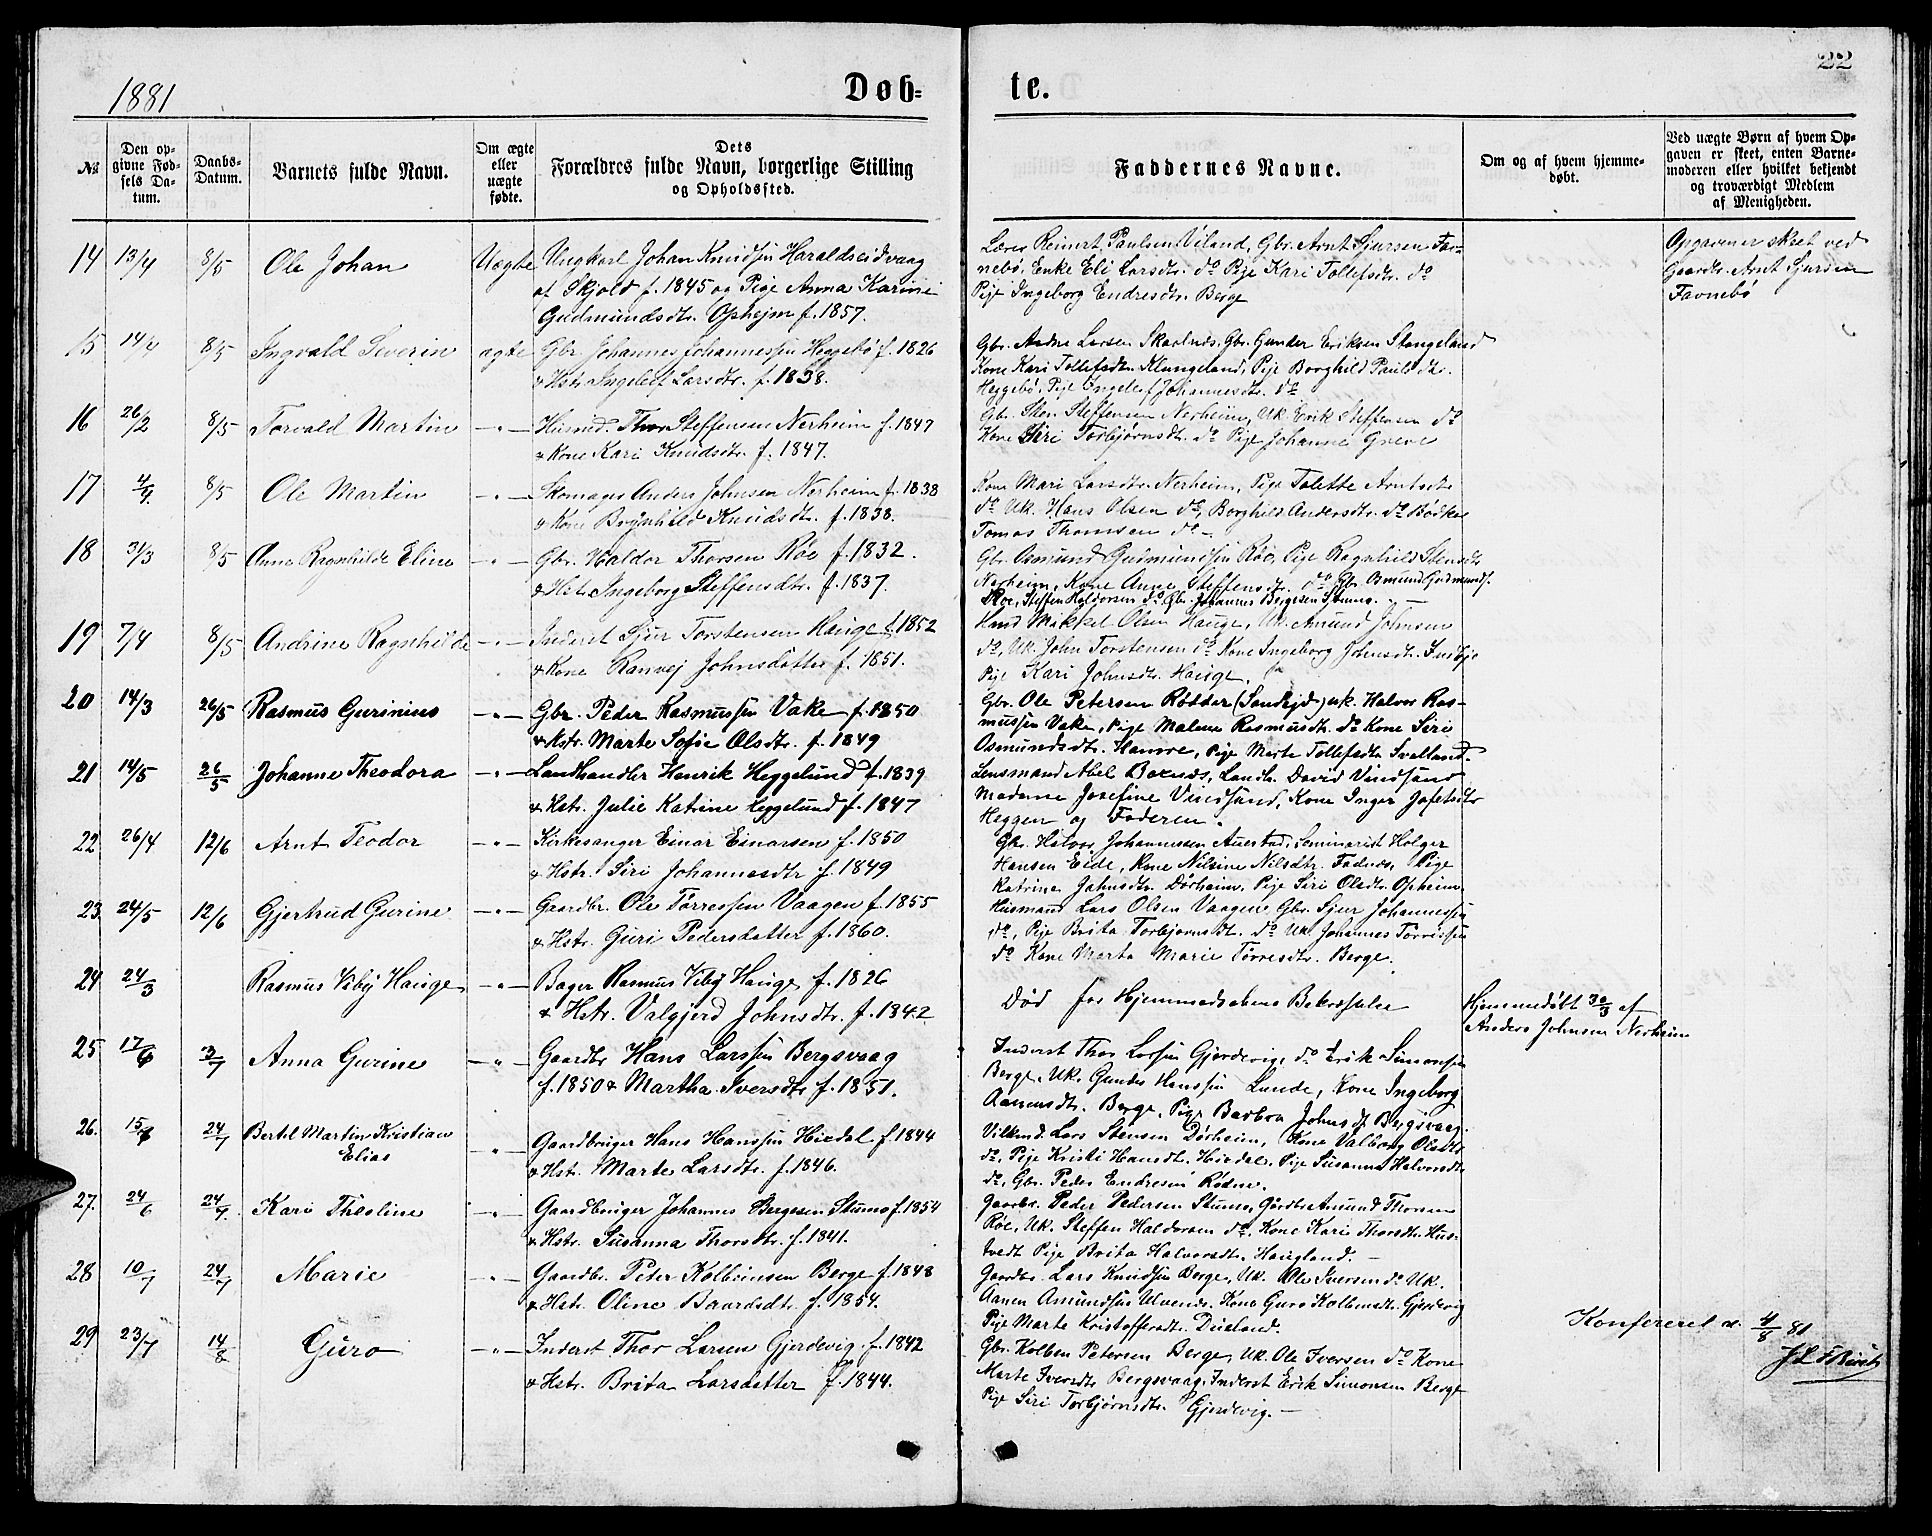 22
1881
Døb-
te.
No.
Den op-
givne Fød-
sels Da-
tum.
Daabs-
Datum.
Barnets fulde Navn.
Om ægte
eller
uægte
fødte.
Dets
Forældres fulde Navn, borgerlige Stilling
og Opholdssted.
Faddernes Navne.
Om og af hvem hjemme-
døbt.
Ved uægte Børn af hvem Op-
gaven er skeet, enten Barne-
moderen eller hvilket bekjendt
og troværdigt Medlem
af Menigheden.
14 13/4 8/5 Ole Johan Uægte Ungkarl Johan Knudsen Haraldseidvaag
af Skjold f. 1845 og Pige Anna Karine
Gudmundsdtr. Opheim f. 1857.
Lærer Reinert Paulsen Viland, Gbr. Arnt Sjursen Fav-
nebø, Enke Eli Larsdtr. do Pige Kari Tollefsdtr. do
Pige Ingeborg Endresdtr. Berge
Opgaven er skeet ved
Gaardbr. Arnt Sjursen
Favnebø
15 14/4 8/5 Ingvald Severin ægte Gbr. Johannes Johannessen Heggebø f. 1826
& Hstr. Ingeleif Larsdtr. f. 1838.
Gbr. Andre Larsen Skaalnes, Gbr. Gunder Eriksen Stangeland
Kone Kari Tollefsdtr. Klungeland, Pige Borghild Paulsdtr.
Heggebø, Pige Ingeleif Johannesdtr. do
16 26/2 8/5 Torvald Martin -"- Husmd. Thor Steffensen Nerheim f. 1847
& Kone Kari Knudsdtr. f. 1847.
Gbr. Sten Steffensen Nerheim, Uk. Erik Steffensen do
Kone Siri Torbjørnsdtr. do Pige Johanne Greve
17 4/4 8/5 Ole Martin -"- Skomager Anders Johnsen Nerheim f. 1838
& Kone Brynhild Knudsdtr. f. 1838.
Kone Mari Larsdtr. Nerheim, Pige Tolette Arntsdtr.
do Uk. Hans Olsen do, Borghild Andersdtr. do Bødker
Tomas Thomsen do -
18 31/3 8/5 Anne Ragnhilde Eline -"- Gbr. Haldor Thorsen Røe f. 1832.
& Hstr. Ingeborg Steffensdtr. f. 1837.
Gbr. Osmund Gudmundsen Røe, Pige Ragnhild Stensdtr.
Nerheim, Kone Anne Steffensdtr. do Gbr. Osmund Gudmunds.
Røe, Steffen Haldorsen do Gbr. Johannes Bergesen Stumo.
19 7/4 8/5 Andrine Ragnhilde -"- Inderst Sjur Torstensen Hauge f. 1852
& Kone Ranvej Johnsdatter f. 1851.
Husmd. Mikkel Olsen Hauge, Uk. Amund Johnsen
do, Uk. John Torstensen do Kone Ingeborg Johnsdtr.
Pige Kari Johnsdtr. Hauge.
20 14/3 26/5 Rasmus Gurinius -"- Gbr. Peder Rasmussen Vake f. 1850
& Hstr. Marte Sofie Olsdtr. f. 1849
Gbr. Ole Petersen Rødder (Sandejd) uk. Halvor Ras-
mussen Vake, Pige Malene Rasmusdtr. do Kone Siri
Osmundsdtr. Hamre, Pige Marta Tollefsdtr. Svalland.
21 14/5 26/5 Johanne Theodora -"- Landhandler Henrik Heggelund f. 1839
& Hstr. Julie Katrine Heggelund f. 1847
Lensmand Abel Boxnæs, Landh. David Vindsund
Madame Josefine Vindsund, Kone Inger Jafetsdtr.
Heggen og Faderen.
22 26/4 12/6 Arnt Teodor -"- Kirkesanger Einar Einarsen f. 1850
& Hstr. Siri Johannesdtr f. 1849
Gbr. Halvor Johannessen Auestad, Seminarist Holger
Hansen Eide, Kone Nilsine Nilsdtr. Fadnes, Pige
Katrine Johnsdtr. Dørheim, Pige Siri Olsdtr. Opheim.
23 24/5 12/6 Gjertrud Gurine -"- Gaardbr. Ole Tørressen Vaagen f. 1855
& Hstr. Guri Pedersdatter f. 1860.
Husmand Lars Olsen Vaagen, Gbr. Sjur Johannessen
do, Pige Brita Torbjørnsdt. do Uk. Johannes Tørressen
do Kone Marta Marie Tørresdtr. Berge.
24 24/3 Rasmus Viby Hauge -"- Bager Rasmus Viby Hauge f. 1826
& Hstr. Valgjerd Johnsdtr. f. 1842
Død før Hjemmedaabens Bekræftelse
Hjemmedøbt 30/3 af
Anders Johnsen Nerheim
25 17/6 3/7 Anna Gurine -"- Gaardbr Hans Larssen Bergsvaag
f. 1850 & Martha Iversdtr f. 1851.
Inderst Thor Larsen Gjerdevig, do Erik Simonsen
Berge, Uk. Gunder Hanssen Lunde, Kone Ingeborg
Aanensdtr. Berge, Pige Barbra Johnsdt. Bergsvaag.
26. 15/6 24/7 Bertel Martin Kristian
Elias -"- Gaardbruger Hans Hanssen Hiedal f. 1844
& Hstr. Marte Larsdtr. f. 1846.
Vilkmd. Lars Stensen Dørheim, Kone Valborg Olsdtr
do, Pige Kristi Hansdt. Hiedal, Pige Susanna Halvorsdtr.
do, Gbr. Peder Endresen Rødne.
27. 24/6 24/7. Kari Theoline -"- Gaardbruger Johannes Bergesen Stumo f. 1854
& Hstr. Susanna Thorsdtr. f. 1841.
Gaardbr. Peder Pedersen Stumo, Gardbr Amund Thorsen
Røe, Uk. Steffen Haldorsen do, Kone Kari Thorsdtr. Hus-
tvedt Pige Brita Halvorsdtr. Haugland. -
28 10/7 24/7 Marie -"- Gaardbr. Peter Kolbeinsen Berge f. 1848
& Hstr. Oline Baardsdt. f. 1854.
Gaardbr. Lars Knudsen Berge, Uk. Ole Iversen do Uk.
Aanen Amundsen Ulvenes, Kone Guro Kolbensdtr. Gjerdevig
Pige Marta Kristoffersdt. Dueland.
29 23/7 14/8 Guro -"- Inderst Thor Larsen Gjerdevig f. 1842
& Hstr. Brita Larsdatter f. 1844.
Gbr. Kolben Petersen Berge, Uk. Ole Iversen do Kone
Marte Iversdt. Bergsvaag, Inderst Erik Simonsen Berge
Pige Siri Torbjørnsdtr. Gjerdevig. -
Konfereret d. 4/8 81